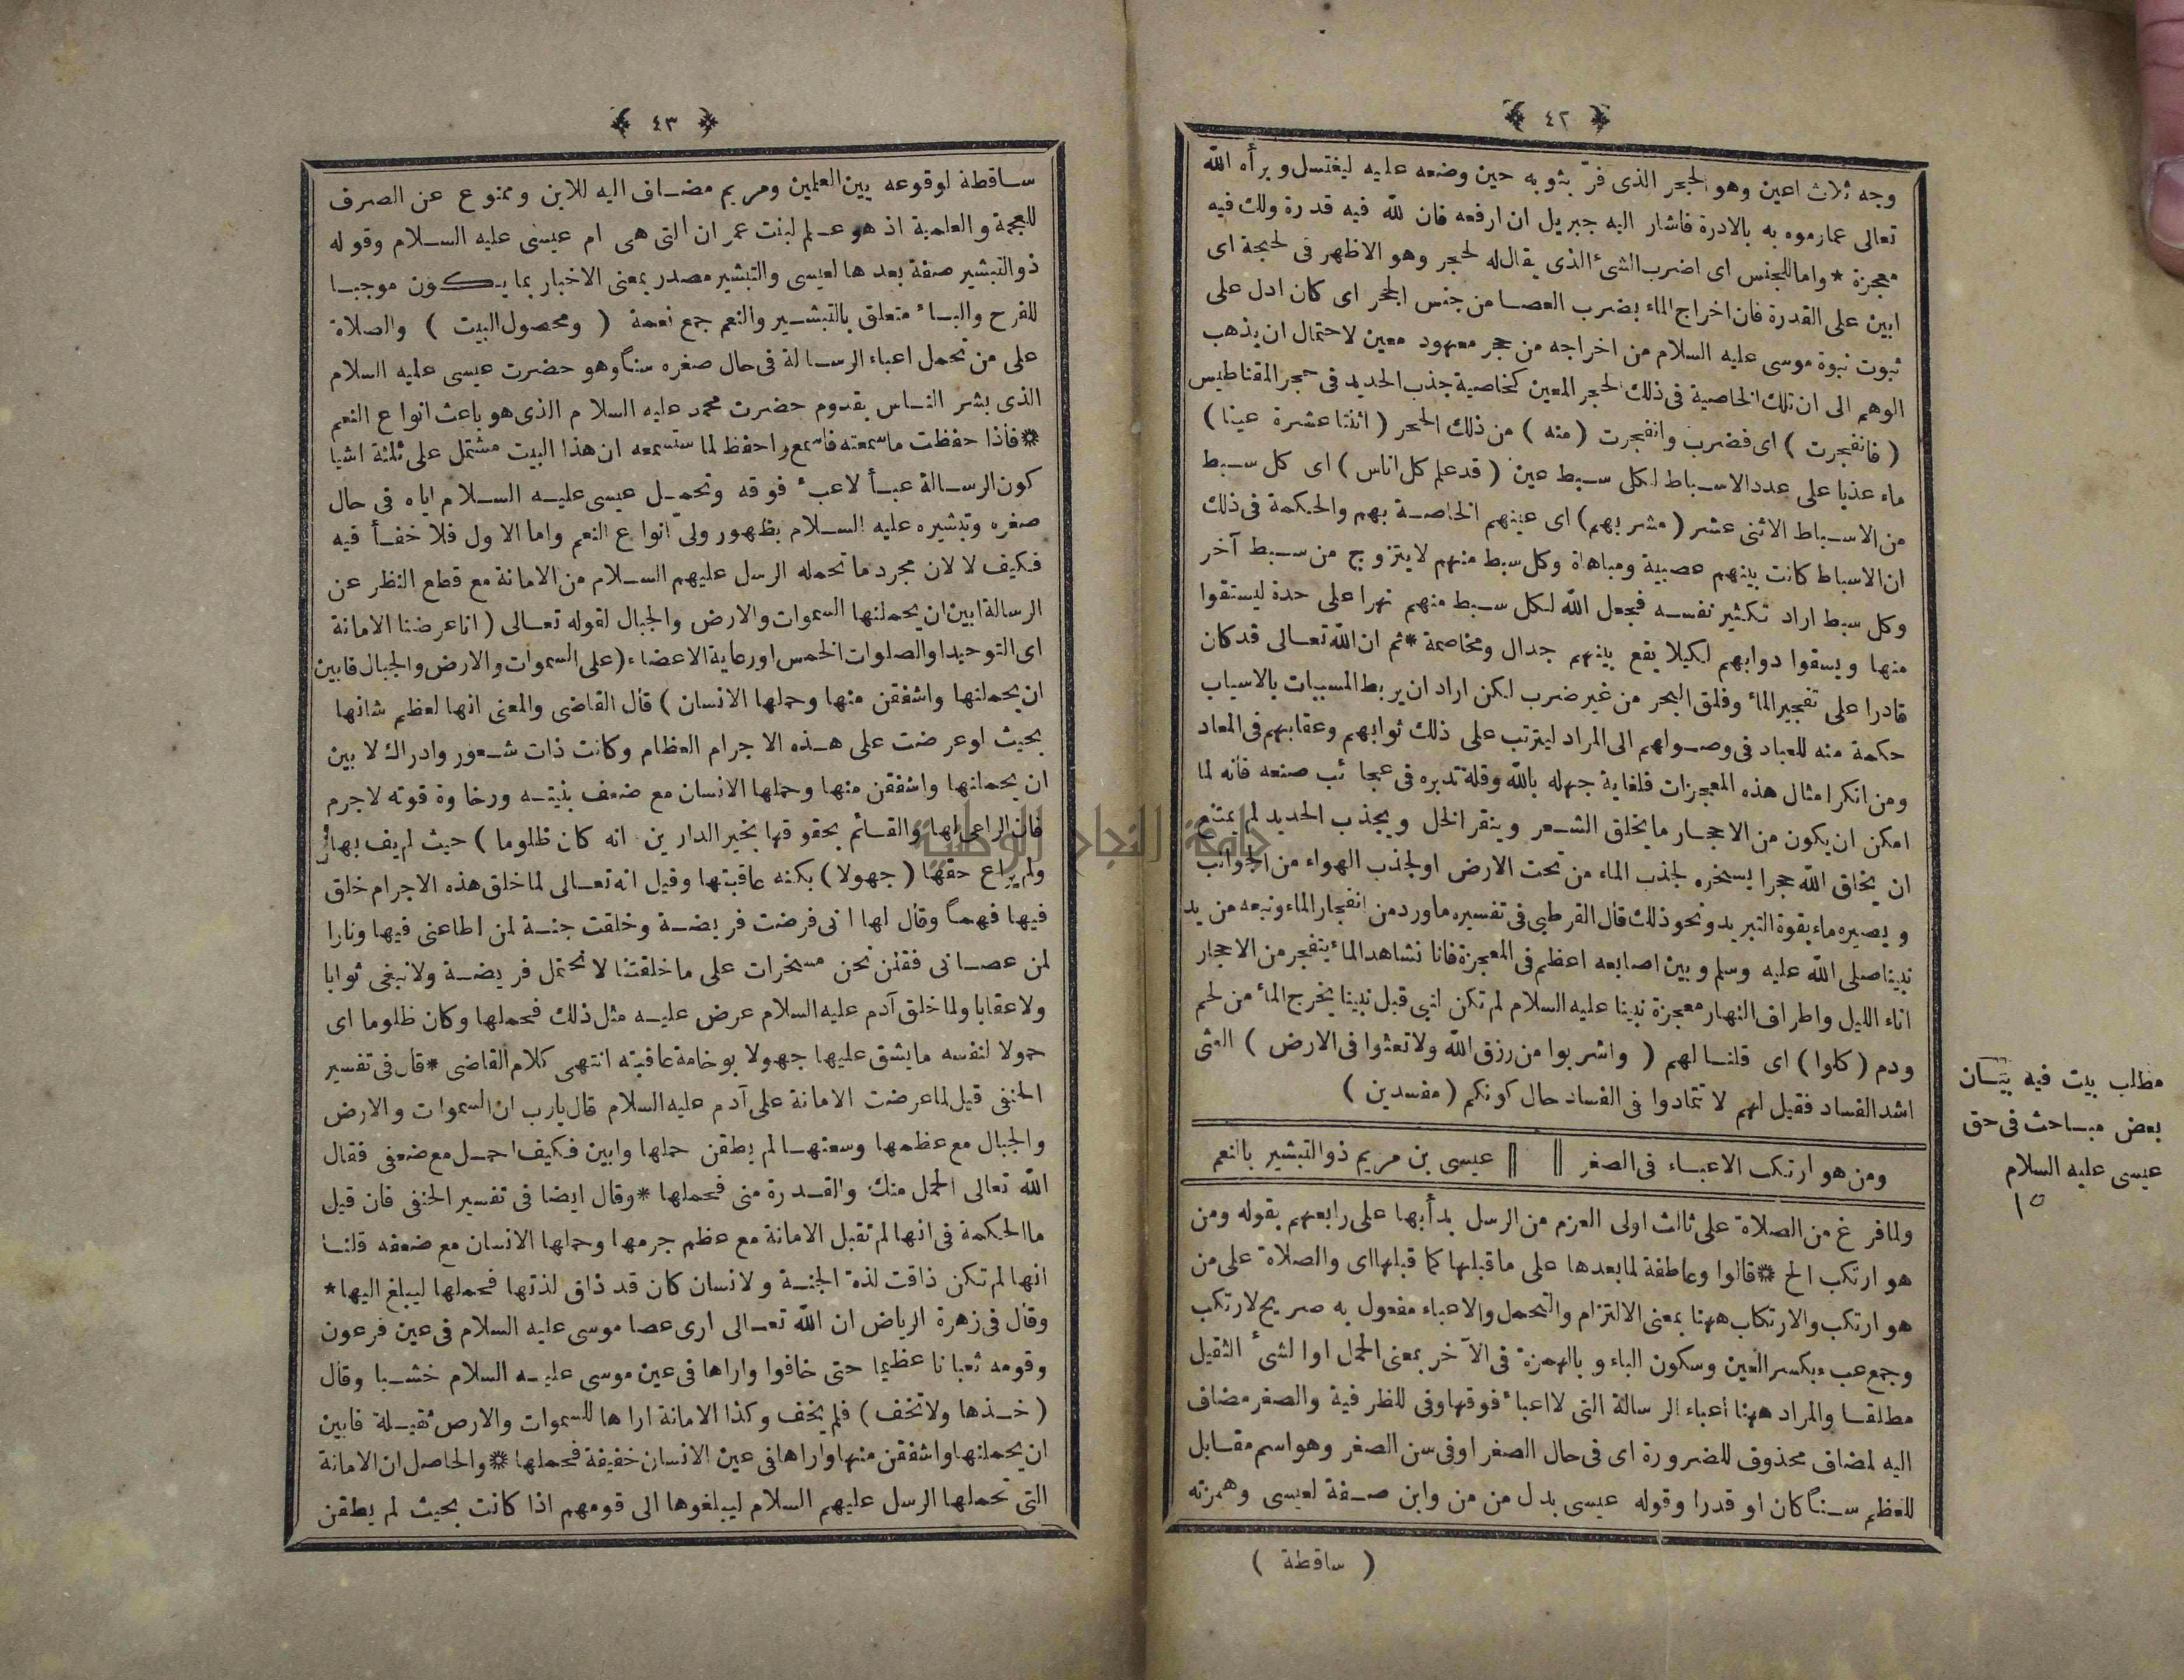 ﴿ ٤٢ ﴾
وجه ثلاث اعين وهو الحجر الذى فرّ بثوبه حين وضعه عليه ليغتسل وبرأه الله
تعالى عمارموه به بالادرة فاشار اليه جبريل ان ارفعه فان لله فيه قدرة ولك فيه
معجزة * واما للجنس اى اضرب الشئ الذى يقال له لحجر وهو الاظهر فى لحجة اى
ابين على القدرة فان اخراج الماء بضرب العصا من جنس الحجر اى كان ادل على
ثبوت نبوة موسى عليه السلام من اخراجه من حجر معهود معين لاحتمال ان يذهب
الوهم الى ان تلك الخاصية فى ذلك الحجر المعين كخاصية جذب الحديد فى حجر المقناطيس
( فانفجرت ) اى فضرب وانفجرت ( منه ) من ذلك الحجر ( اثنتا عشرة عينا )
ماء عذبا على عدد الاسباط لكل سبط عين ( قد علم كل اناس ) اى كل سبط
من الاسباط الاثنى عشر ( مشربهم ) اى عينهم الخاصة بهم والحكمة فى ذلك
ان الاسباط كانت بينهم عصبية ومباهاة وكل سبط منهم لايتزوج من سبط آخر
وكل سبط اراد تكثير نفسه فجعل الله لكل سبط منهم نهرا على حدة ليستقوا
منها ويسقوا دوابهم لكيلا يقع بينهم جدال ومخاصمة * ثم ان الله تعالى قد كان
قادرا على تفجير الماء وفلق البحر من غير ضرب لكن اراد ان يربط المسببات بالاسباب
حكمة منه للعباد فى وصولهم الى المراد ليترتب على ذلك ثوابهم وعقابهم فى المعاد
ومن انكر امثال هذه المعجزات فلغاية جهله بالله وقلة تدبره فى عجائب صنعه فانه لما
امكن ان يكون من الاحجار ما يحلق الشعر وينقر الخل ويجذب الحديد لم يمتنع
ان يخلق الله حجرا يسخره لجذب الماء من تحت الارض او لجذب الهواء من الجوانب
ويصيره ماء بقوة التبريد ونحو ذلك قال القرطبى فى تفسيره ماورد من انفجار الماء ونبعه من يد
نبينا صلى الله عليه وسلم وبين اصابعه اعظم فى المعجزة فانا نشاهد الماء يتفجر من الاحجار
اناء الليل واطراف النهار معجزة نبينا عليه السلام لم تكن لنبى قبل نبينا يخرج الماء من لحم
ودم ( كلوا ) اى قلنا لهم ( واشربوا من رزق الله ولاتعثوا فى الارض ) العثى
اشد الفساد فقيل لهم لا تتمادوا فى الفساد حال كونكم ( مفسدين )
ومن هو ارتكب الاعباء فى الصغر ‖ ‖ عيسى بن مريم ذو التبشير بالنعم
ولما فرغ من الصلاة على ثالث اولى العزم من الرسل بدأ بها على رابعهم بقوله ومن
هو ارتكب الخ * قالوا وعاطفة لما بعدها على ماقبلها كما قبلها اى والصلاة على من
هو ارتكب والارتكاب ههنا بمعنى الالتزام والتحمل والاعباء مفعول به صريح لارتكب
وجمع عبء بكسر العين وسكون الباء وبالهمزة فى الآخر بمعنى الحمل او الشئ الثقيل
مطلقا والمراد ههنا اعباء الرسالة التى لا اعباء فوقها وفى للظرفية والصغر مضاف
اليه لمضاف محذوف للضرورة اى فى حال الصغر او فى سن الصغر وهو اسم مقابل
للعظم سنا كان او قدرا وقوله عيسى بدل من من وابن صفة لعيسى وهمزته
( ساقطة )
مطلب بيت فيه بيان
بعض مباحث فى حق
عيسى عليه السلام
١٥
﴿ ٤٣ ﴾
ساقطة لوقوعه بين العلمين ومريم مضاف اليه للابن وممنوع عن الصرف
للعجمة والعلمية اذ هو علم لبنت عمران التى هى ام عيسى عليه السلام وقوله
ذو التبشير صفة بعدها لعيسى والتبشير مصدر بمعنى الاخبار بما يكون موجبا
للفرح والباء متعلق بالتبشير والنعم جمع نعمة ( ومحصول البيت ) والصلاة
على من تحمل اعباء الرسالة فى حال صغره سنا وهو حضرت عيسى عليه السلام
الذى بشر الناس بقدوم حضرت محمد عليه السلام الذى هو باعث انواع النعم
* فاذا حفظت ماسمعته فاسمع واحفظ لما ستسمعه ان هذا البيت مشتمل على ثلثة اشيا
كون الرسالة عبأ لاعبء فوقه وتحمل عيسى عليه السلام اياه فى حال
صغره وتبشيره عليه السلام بظهور ولىّ انواع النعم واما الاول فلا خفأ فيه
فكيف لا لان مجرد ماتحمله الرسل عليهم السلام من الامانة مع قطع النظر عن
الرسالة ابين ان يحملنها السموات والارض والجبال لقوله تعالى ( انا عرضنا الامانة
اى التوحيد او الصلوات الخمس او رعاية الاعضاء ( على السموات والارض والجبال فابين
ان يحملنها واشفقن منها وحملها الانسان ) قال القاضى والمعنى انها لعظم شانها
بحيث لو عرضت على هذه الاجرام العظام وكانت ذات شعور وادراك لابين
ان يحملنها واشفقن منها وحملها الانسان مع ضعف بنيته ورخاوة قوته لاجرم
فان الراعى لها والقائم بحقوقها بخير الدارين انه كان ظلوما ) حيث لم يف بها
ولم يراع حقها ( جهولا ) بكنه عاقبتها وقيل انه تعالى لما خلق هذه الاجرام خلق
فيها فهما وقال لها انى فرضت فريضة وخلقت جنة لمن اطاعنى فيها ونارا
لمن عصانى فقلن نحن مسخرات على ماخلقتنا لانحتمل فريضة ولانبغى ثوابا
ولاعقابا ولما خلق آدم عليه السلام عرض عليه مثل ذلك فحملها وكان ظلوما اى
حمولا لنفسه مايشق عليها جهولا بوخامة عاقبته انتهى كلام القاضى * قال فى تفسير
الحنفى قيل لما عرضت الامانة على آدم عليه السلام قال يارب ان السموات والارض
والجبال مع عظمها وسعتها لم يطقن حملها وابين فكيف احمل مع ضعفى فقال
الله تعالى الحمل منك والقدرة منى فحملها * وقال ايضا فى تفسير الحنفى فان قيل
ما الحكمة فى انها لم تقبل الامانة مع عظم جرمها وحملها الانسان مع ضعفه قلنا
انها لم تكن ذاقت لذة الجنة ولانسان كان قد ذاق لذتها فحملها ليبلغ اليها *
وقال فى زهرة الرياض ان الله تعالى ارى عصا موسى عليه السلام فى عين فرعون
وقومه ثعبانا عظيما حتى خافوا واراها فى عين موسى عليه السلام خشبا وقال
( خذها ولاتخف ) فلم يخف وكذا الامانة اراها للسموات والارض ثقيلة فابين
ان يحملنها واشفقن منها واراها فى عين الانسان خفيفة فحملها * والحاصل ان الامانة
التى تحملها الرسل عليهم السلام ليبلغوها الى قومهم اذا كانت بحيث لم يطقن
جامعة النجاح الوطنية